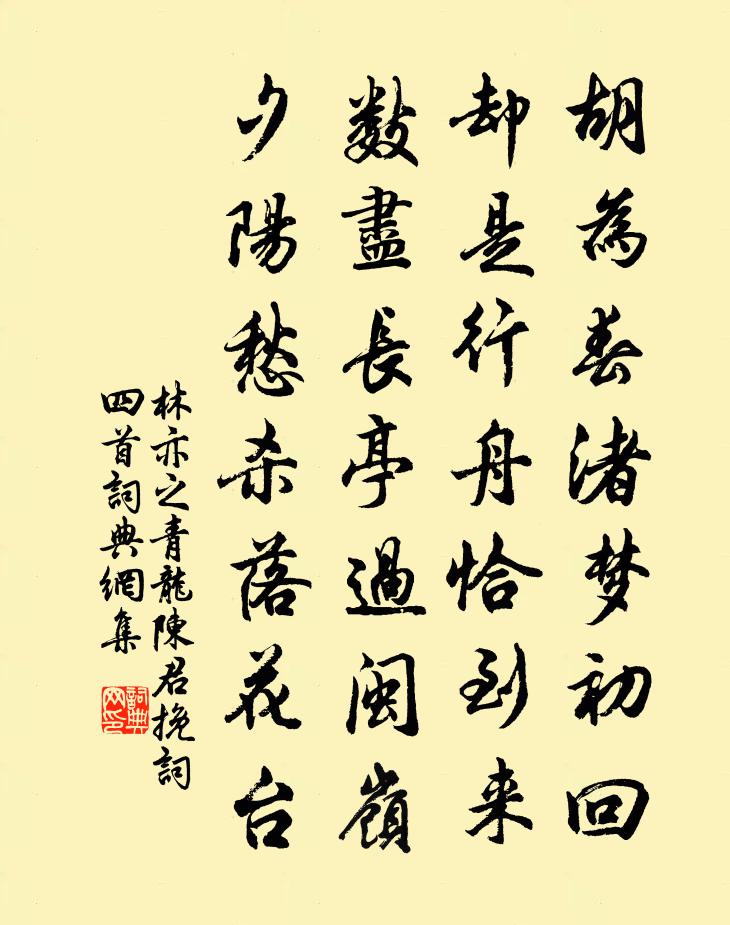 胡為春渚梦初回
却是行舟恰到来
数盡長亭過闽嶺
夕陽愁杀落花台
林亦之青龍陳君挽詞
四首詞典網集
詞典网印